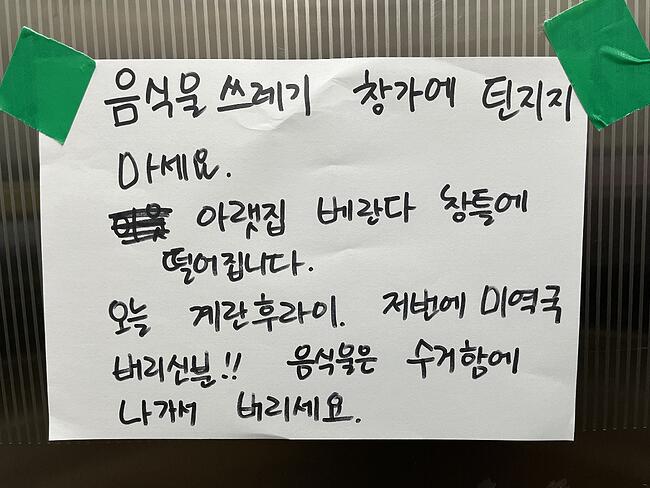 음식물 쓰레기 창가에 던지지
마세요.
아랫집 베란다 창틀에
떨어집니다.
오늘 계란후라이. 저번에 미역국
버리신분!! 음식물은 수거함에
나가서 버리세요.